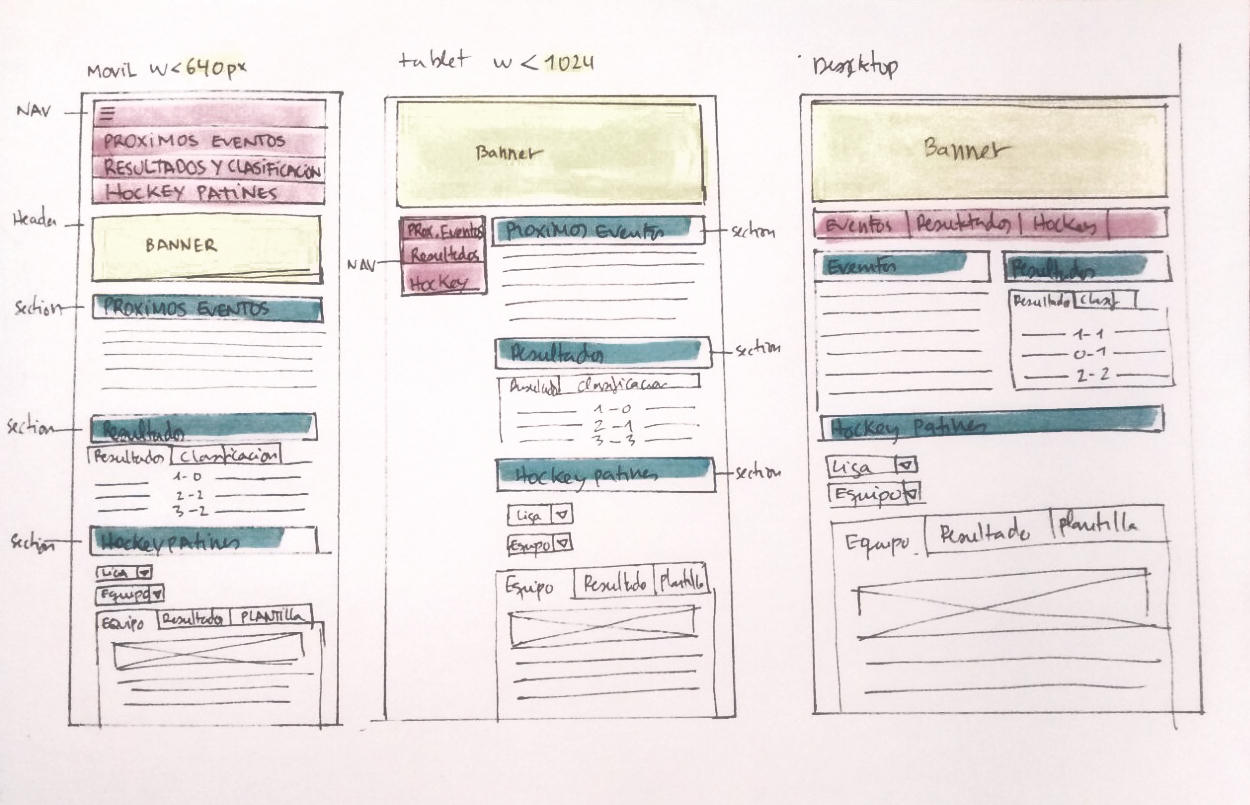 MOVIL W<640px
NAV
PROXIMOS EVENTOS
RESULTADOS Y CLASIFICACIÓN
HOCKEY PATINES
Header
BANNER
Section
PROXIMOS EVENTOS
Section
Resultados
Resultados Clasificacion
1-0
2-2
3-2
Section
Hockey patines
Liga
Equipo
EQUIPO Resultados PLANTILLA
tablet w<1024
Banner
NAV
Prox. Eventos
Resultados
Hockey
PROXIMOS Eventos
section
Resultados
section
Resultad Clasificacion
1-0
2-1
3-3
Hockey patines
section
Liga
Equipo
Equipo Resultado plantilla
Desktop
Banner
Eventos Resultados Hockey
Eventos
Resultados
Resultado Clasif
1-1
0-1
2-2
Hockey Patines
Liga
Equipo
Equipo Resultado plantilla